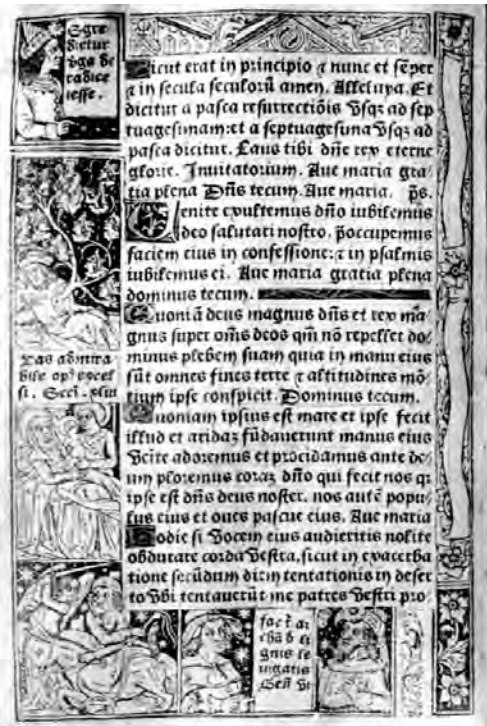 Egre
dietur
v̾ga de
radice
iesse.
Sicut erat in principio ⁊ nunc et sēper
⁊ in secula seculorū amen. Alleluya. Et
dicitur a pasca resurrectiōis vsqꝫ ad sep
tuagesimam: et a septuagesima vsqꝫ ad
pasca dicitur. Laus tibi dn̄e rex eterne
glorie. Inuitatorium. Aue maria gra⸗
tia plena Dn̄s tecum. Aue maria. p̄s.
Venite exultemus dn̄o iubilemus
deo salutati nostro. p̄occupemus
faciem eius in confessione: ⁊ in psalmis
iubilemus ei. Aue maria gratia plena
dominus tecum.
Quoniā deus magnus dn̄s et rex ma⸗
gnus super om̄s deos qm̄ nō repellet do⸗
minus plebem suam quia in manu eius
sūt omnes fines terre ⁊ altitudines mō⸗
tium ipse conspicit. Dominus tecum.
Quoniam ipsius est mare et ipse fecit
illud et aridaꝫ fūdauerunt manus eius
Ueite adoremus et procidamus ante de⸗
um ploremus coraꝫ dn̄o qui fecit nos qꝛ
ipse est dn̄s deus noster. nos autē popu⸗
lus eius et oues pascue eius. Aue maria
Hodie si vocem eius audieritis nolite
obdurate corda vestra, sicut in exacerba
tione secūdum diem tentationis in deser
to vbi tentauerūt me patres vestri pro
vas admira
bile op⁹ excel
si.
fact̄ ar
chā d̄ li
gnis le
uigatis